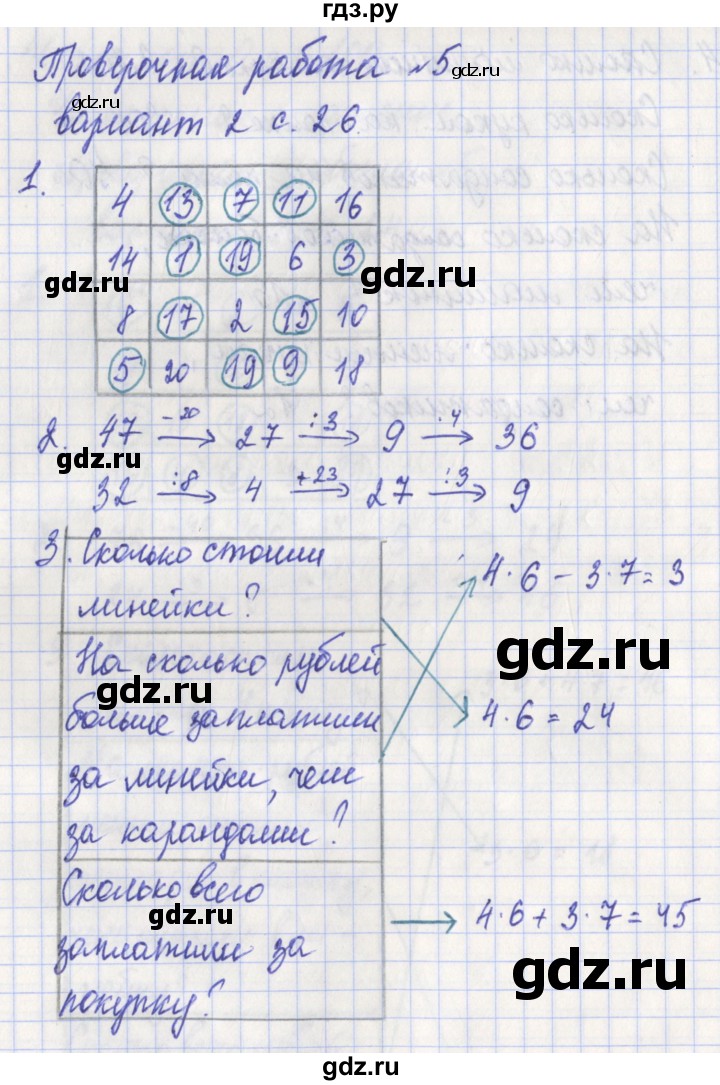 гдз.ру
Проверочная работа №5
вариант 2 с. 26.
1.
4 13 7 11 16
14 1 19 6 3
8 17 2 15 10
5 20 19 9 18
2. 47 -20 → 27 :3 → 9 ·4 → 36
32 :8 → 4 +23 → 27 :3 → 9
3. Сколько стоили
линейки?
На сколько рублей
больше заплатили
за линейки, чем
за карандаши?
Сколько всего
заплатили за
покупку?
4·6 - 3·7 = 3
4·6 = 24
4·6 + 3·7 = 45
gdz.ru
gdz.ru
gdz.ru
gdz.ru
gdz.ru
gdz.ru
gdz.ru
gdz.ru
gdz.ru
gdz.ru
gdz.ru
gdz.ru